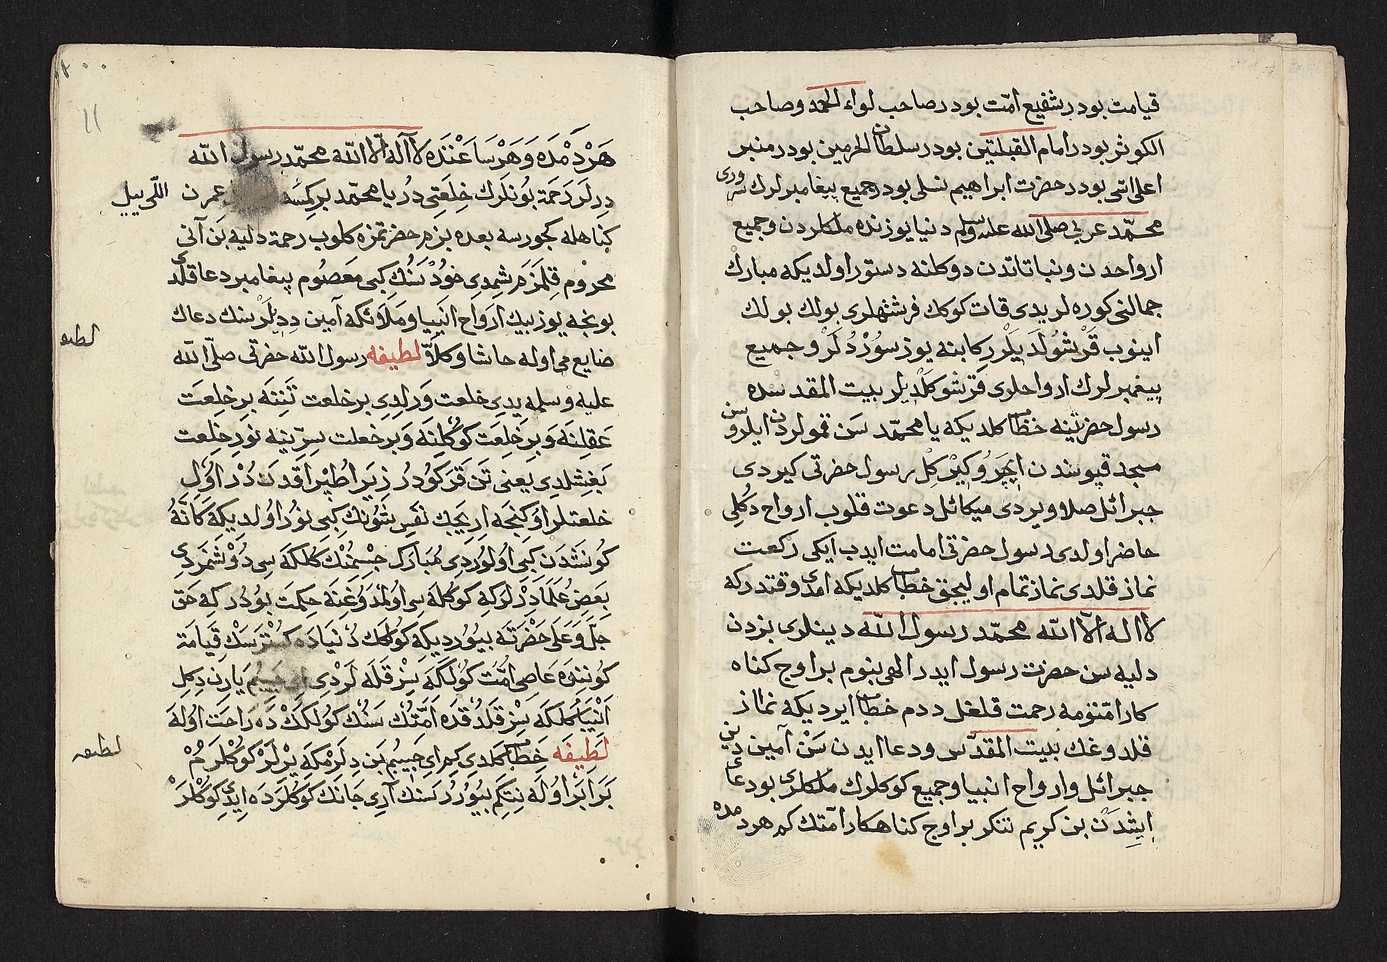 قیامت بودر شفیع امّت بودر صاحب لواء الحمد وصاحب
الکوثر بودر امام القبلتین بودر سلطان الحرمین بودر منبر
اعلا اسّی بودر حضرت ابراهیم نسلی بودر جمیع پیغامبرلرك سروری
محمّد عربی صلی الله علیه وسلم دنیا یوزنده ملکلردن وجمیع
ارواحدن ونباتاتدن دوکلنه دستور اولدیکه مبارك
جمالنی کوره لر یدی قات کوکك فرشتهلری بولك بولك
اینوب قرشو لدیلر رکابنه یوز سوردلر وجمیع
پیغمبرلرك ارواحلری قرشو کلدیلر بیت المقدسده
رسول حضرتینه خطاب کلدیکه یا محمّد سن قمولردن ایلروسن
مسجد قپوسندن ایچرو کیر کل رسول حضرتی کیردی
جبرائل صلا ویردی میکائل دعوت قلوب ارواح دکلی
حاضر اولدی رسول حضرتی امامت ایدب ایکی رکعت
نماز قلدی نماز تمام اولیجق خطاب کلدیکه امدی وقتدرکه
لا اله الا الله محمّد رسول الله دینلری بزدن
دلیه سن حضرت رسول ایدر الهی بنوم بر اوج کناه
کار امّتومه رحمت قلغل ددم خطاب ایردیکه نماز
قلدوغك بیت المقدّس ودعا ایدن سن آمین دین
جبرائل وارواح انبیا وجمیع کوکلرك ملکلری بو دعایی
ایشدن بن کریم تنکر بر اوج کناهکار امّتك کم هر دمده
هر دمده و هر ساعتده لا اله الا الله محمّد رسول الله
درلر رحمة بونلرك خلعتی در یا محمّد بر کسه عمرن اللّی ییل
کناهله کچورسه بعده بزم حضرتمزه کلوب رحمة دلیه بن آنی
محروم قلمزم شمدی خود سنك کبی معصوم پیغامبر دعا قلدی
بونجه یوز بیك ارواح انبیا وملائکه آمین ددیلر سنك دعاك
ضایع می اوله حاشا وکلاّ لطیفه رسول الله حضرتی صلّی الله
لطیفه
علیه وسلمه یدی خلعت ورلدی بر خلعت تننه بر خلعت
عقلنه وبر خلعت کوکلنه وبر خعلت سرّینه نور خلعت
بغشلدی یعنی تن قرکودر زیرا طپراقدندر اول
خلعتلر اوکنجه اریجك نفس شونك کبی نور اولدیکه کانّه
کونشدن کبی اولوردی مبارك جسمنك کلکه سی دوشمزدی
بعض علما درلرکه کولکه سی اولمدوغنه حکمت بودر که حق
جلّ وعلی حضرته بیوردیکه کولکك دنیاده کسترسك قیامة
کوننده عاصی امّت کولکه سز قله لردی ای حبیبم یارن دکل
انبیا کلکه سز قلدقده امّتك سنك کولکكده راحت اوله
لطیفه خطاب کلدی کم ای حبیبم بن دلرمکه یرلر کوکلرم
لطیفه
برابر اوله نتکم بیورر سنك آری جانك کوکلرده ایدی کوکلر